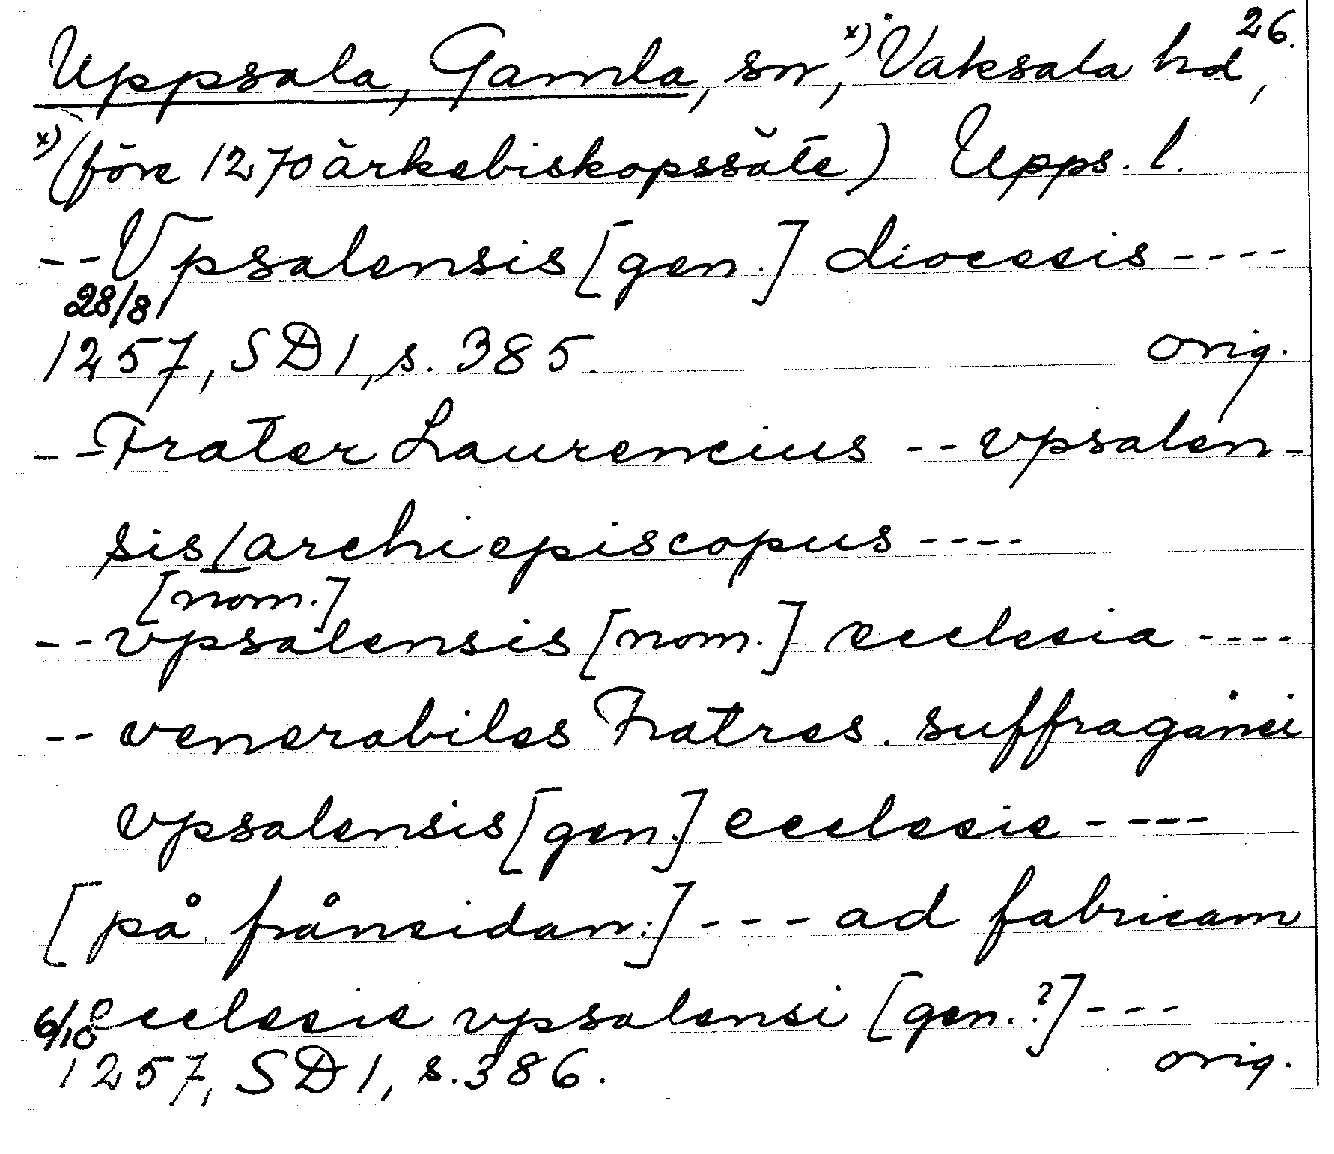 26.
Uppsala, Gamla, sn, x) Vaksala hd,
x) (före 1270 ärkebiskopssäte) Upps. l.
-- Vpsalensis [gen.] diocesis ----
28/8
1257, SD 1, s. 385. orig.
-- Frater Laurencius -- vpsalen-
sis/archiepiscopus ----
[nom.]
-- vpsalensis [nom.] ecclesia ----
-- venerabiles Fratres. suffraganei
vpsalensis [gen.] ecclesie ----
[på frånsidan:] --- ad fabricam
ecclesie vpsalensi [gen.?] ---
6/10
1257, SD 1, s. 386. orig.